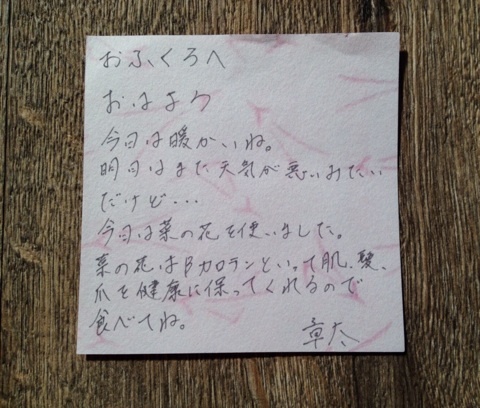 おふくろへ
おはよう
今日は暖かいね。
明日はまた天気が悪いみたい
だけど・・・
今日は菜の花を使いました。
菜の花はβカロテンといって肌、髪、
爪を健康に保ってくれるので
食べてね。
章太